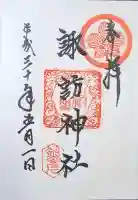 奉拝
諏訪神社
平成三十年五月一日